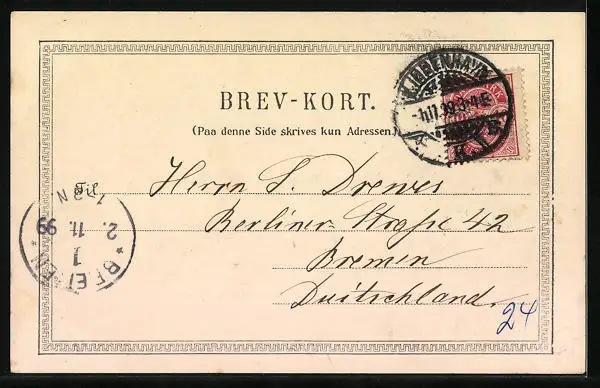 KJØBENHAVN
1.11.99.
K.
BREV-KORT.
(Paa denne Side skrives kun Adressen.)
Til
Herrn S. Drewes
Berliner-Straße 42
Bremen
Duitschland.
BREMEN
2. 11. 99
1
24